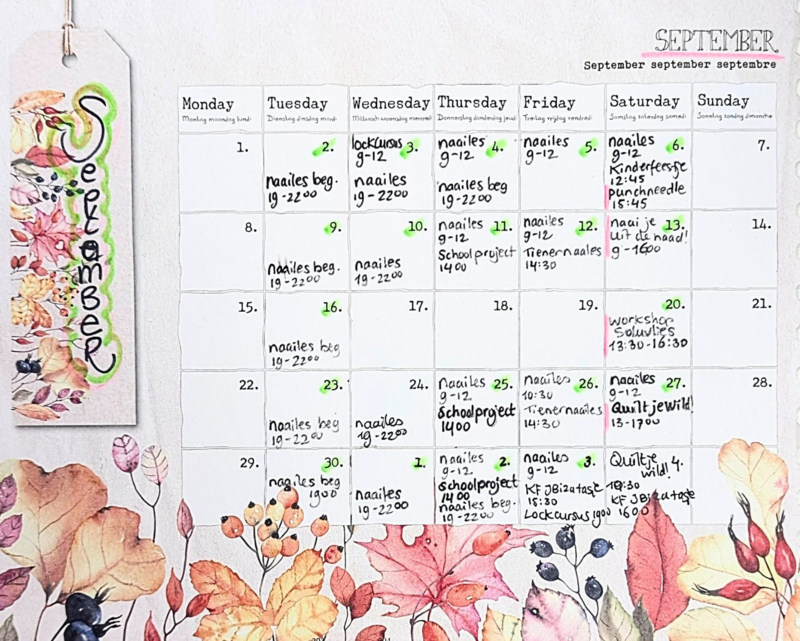 SEPTEMBER
September september septembre
September
Monday
Tuesday
Wednesday
Thursday
Friday
Saturday
Sunday
1.
2.
naailes beg.
19-22⁰⁰
lockcursus 3.
9-12
naailes
19-22⁰⁰
naailes 4.
9-12
naailes beg
19-22⁰⁰
naailes 5.
9-12
naailes 6.
9-12
Kinderfeestje
12:45
punchneedle
15:45
7.
8.
9.
naailes beg.
19-22⁰⁰
10.
naailes
19-22⁰⁰
naailes 11.
9-12
School project
14⁰⁰
naailes 12.
9-12
Tienernaailes
14:30
naai je 13.
uit de naad!
9-16⁰⁰
14.
15.
16.
naailes beg
19-22⁰⁰
17.
18.
19.
20.
workshop
13:30-16:30
21.
22.
23.
naailes beg
19-22⁰⁰
24.
naailes
19-22⁰⁰
naailes 25.
9-12
schoolproject
14⁰⁰
naailes 26.
10:30
Tienernaailes
14:30
naailes 27.
9-12
Quilt je wild!
13-17⁰⁰
28.
29.
30.
naailes beg
19⁰⁰
1.
naailes
19-22⁰⁰
naailes 2.
9-12
schoolproject
14⁰⁰
naailes beg
19-22⁰⁰
naailes 3.
9-12
KF
15:30
Lockcursus 19⁰⁰
Quilt je
wild! 4.
10:30
KF
16⁰⁰